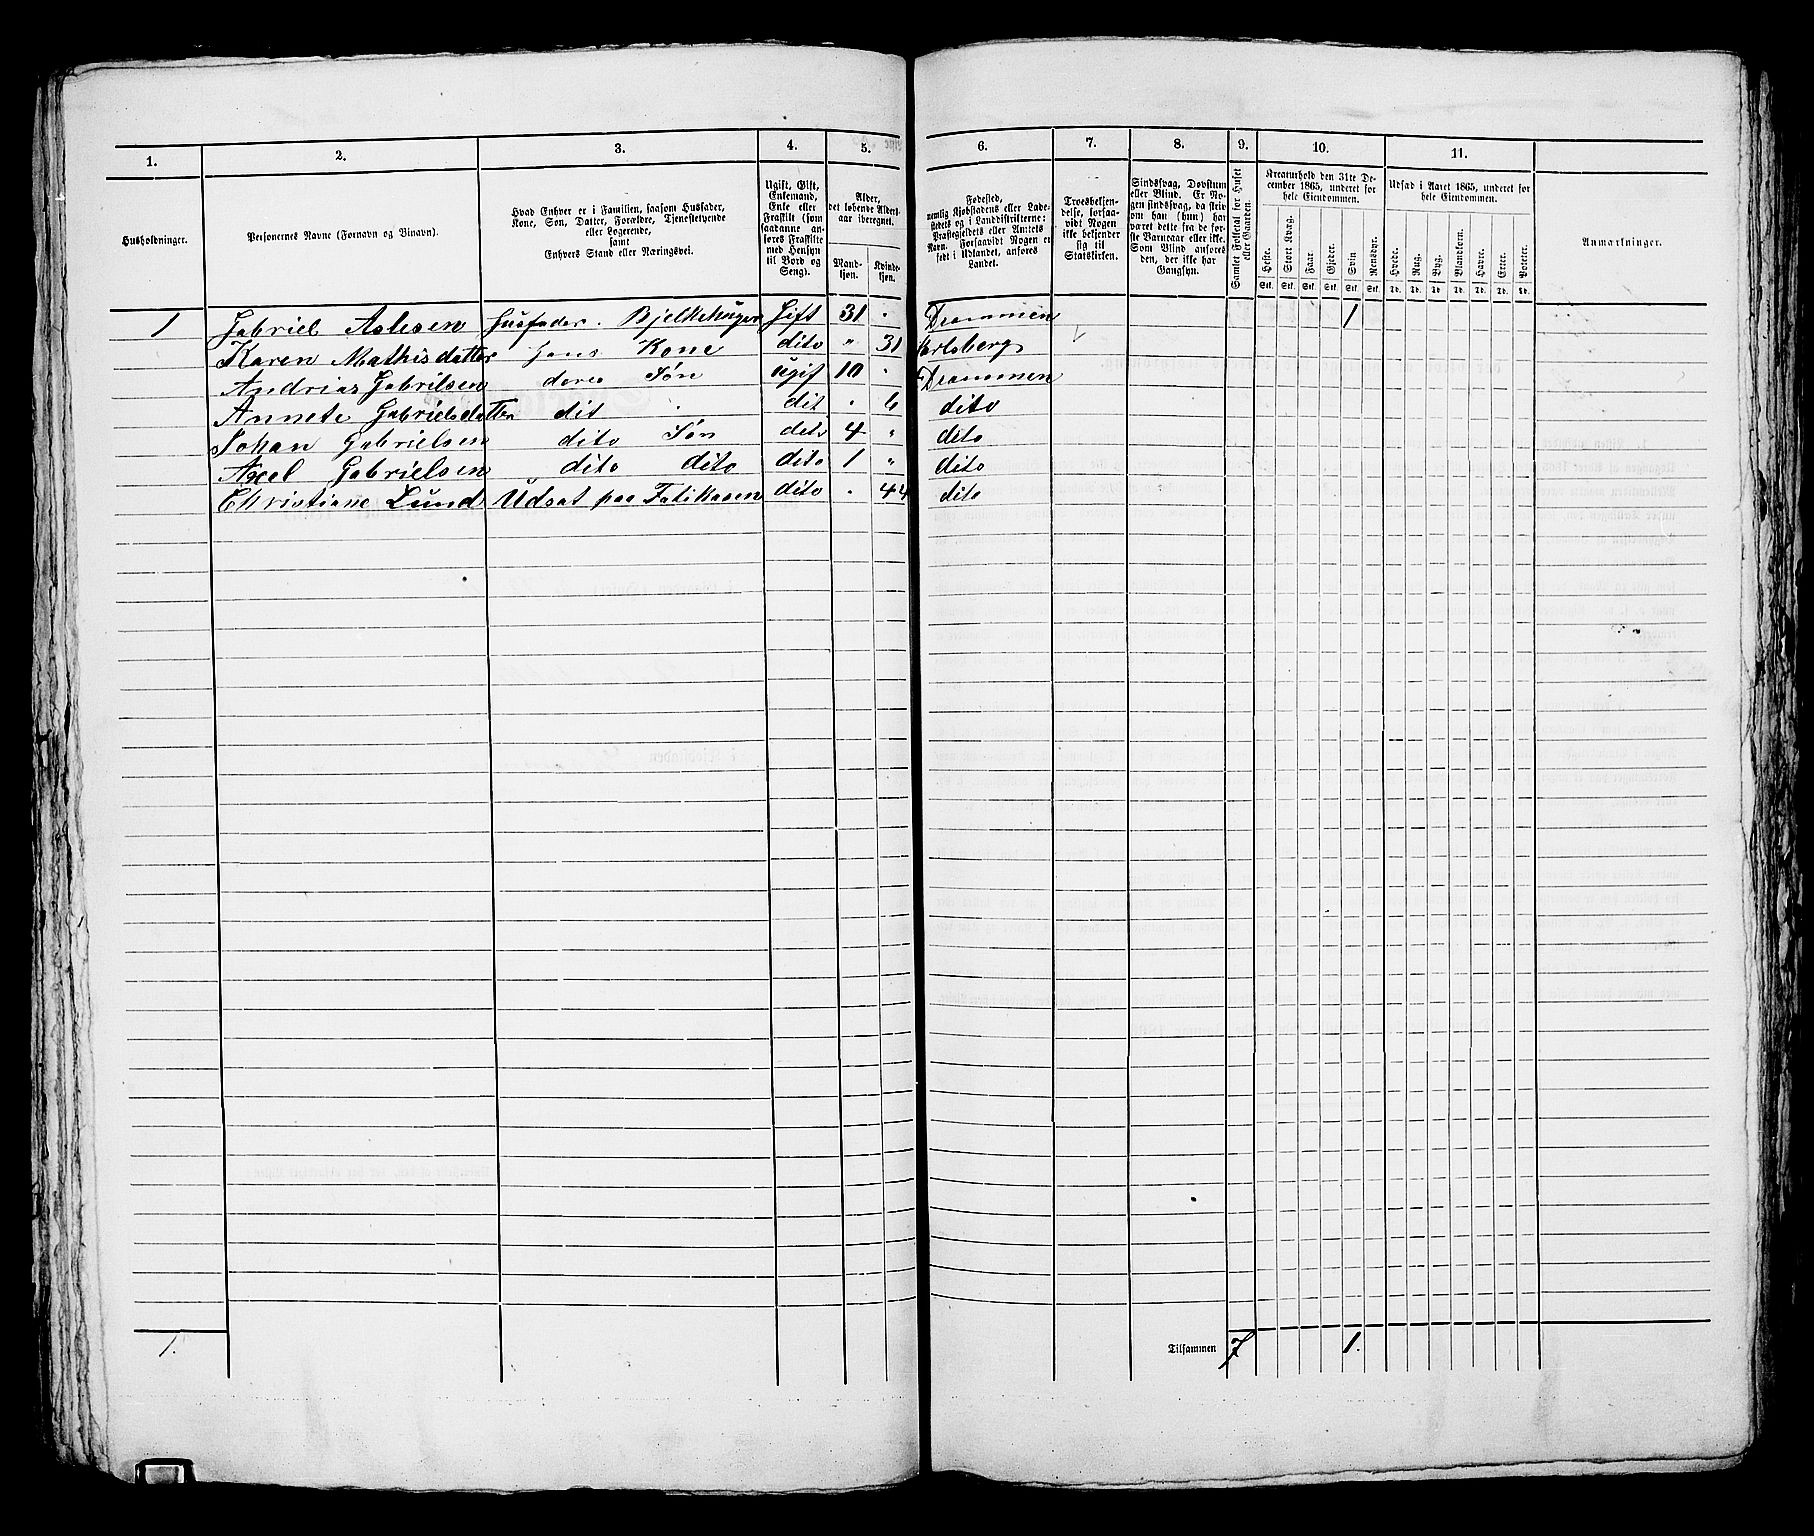 1. 2. 3. 4. 5. 6. 7. 8. 9. 10. 11.
Husholdninger.
Personernes Navne (Fornavn og Binavn).
Hvad Enhver er i Familien, saasom Husfader,
Kone, Søn, Datter, Forældre, Tjenestetyende
eller Logerende,
samt
Enhvers Stand eller Næringsvei.
Ugift, Gift,
Enkemand,
Enke eller
Fraskilt (som
saadanne an-
føres Fraskilte
med Hensyn
til Bord og
Seng).
Alder,
det løbende Alders-
aar iberegnet.
Mand-
kjøn.
Kvinde-
kjøn.
Fødested,
nemlig Kjøbstadens eller Lade-
stedets og i Landdistrikterne:
Præstegjeldets eller Amtets
Navn. Forsaavidt Nogen er
født i Udlandet, anføres
Landet.
Troesbekjen-
delse, forsaa-
vidt Nogen
ikke bekjender
sig til
Statskirken.
Sindssvag, Døvstum
eller Blind. Er No-
gen sindssvag, da skriv
om han (hun) har
været dette fra de før-
ste Barneaar eller ikke.
Som Blind anføres
den, der ikke har
Gangsyn.
Samlet Folketal for Huset
eller Gaarden.
Kreaturhold den 31te De-
cember 1865, underet for
hele Eiendommen.
Heste. Stort Kvæg. Faar. Gjeder. Svin Rensdyr.
Stk. Stk. Stk. Stk. Stk. Stk.
Udsæd i Aaret 1865, underet for
hele Eiendommen.
Hvede. Rug. Byg. Blandkorn. Havre. Erter. Poteter.
Td. Td. Td. Td. Td. Td. Td.
Anmærkninger.
1 Gabriel Aslesen Husfader. Bjelkehuger Gift 31 " Drammen 1
Karen Mathisdatter Hans Kone dito " 31 Jarlsberg
Andrias Gabrilsen deres Søn ugif 10 " Drammen
Annete Gabrielsdatter dit dit " 6 dito
Johan Gabrielsen dito Søn dito 4 " dito
Axel Gabrielsen dito dito dito 1 " dito
Christiane Lund Udsat paa Fatikasen dito " 44 dito
1. Tilsammen 7 1.